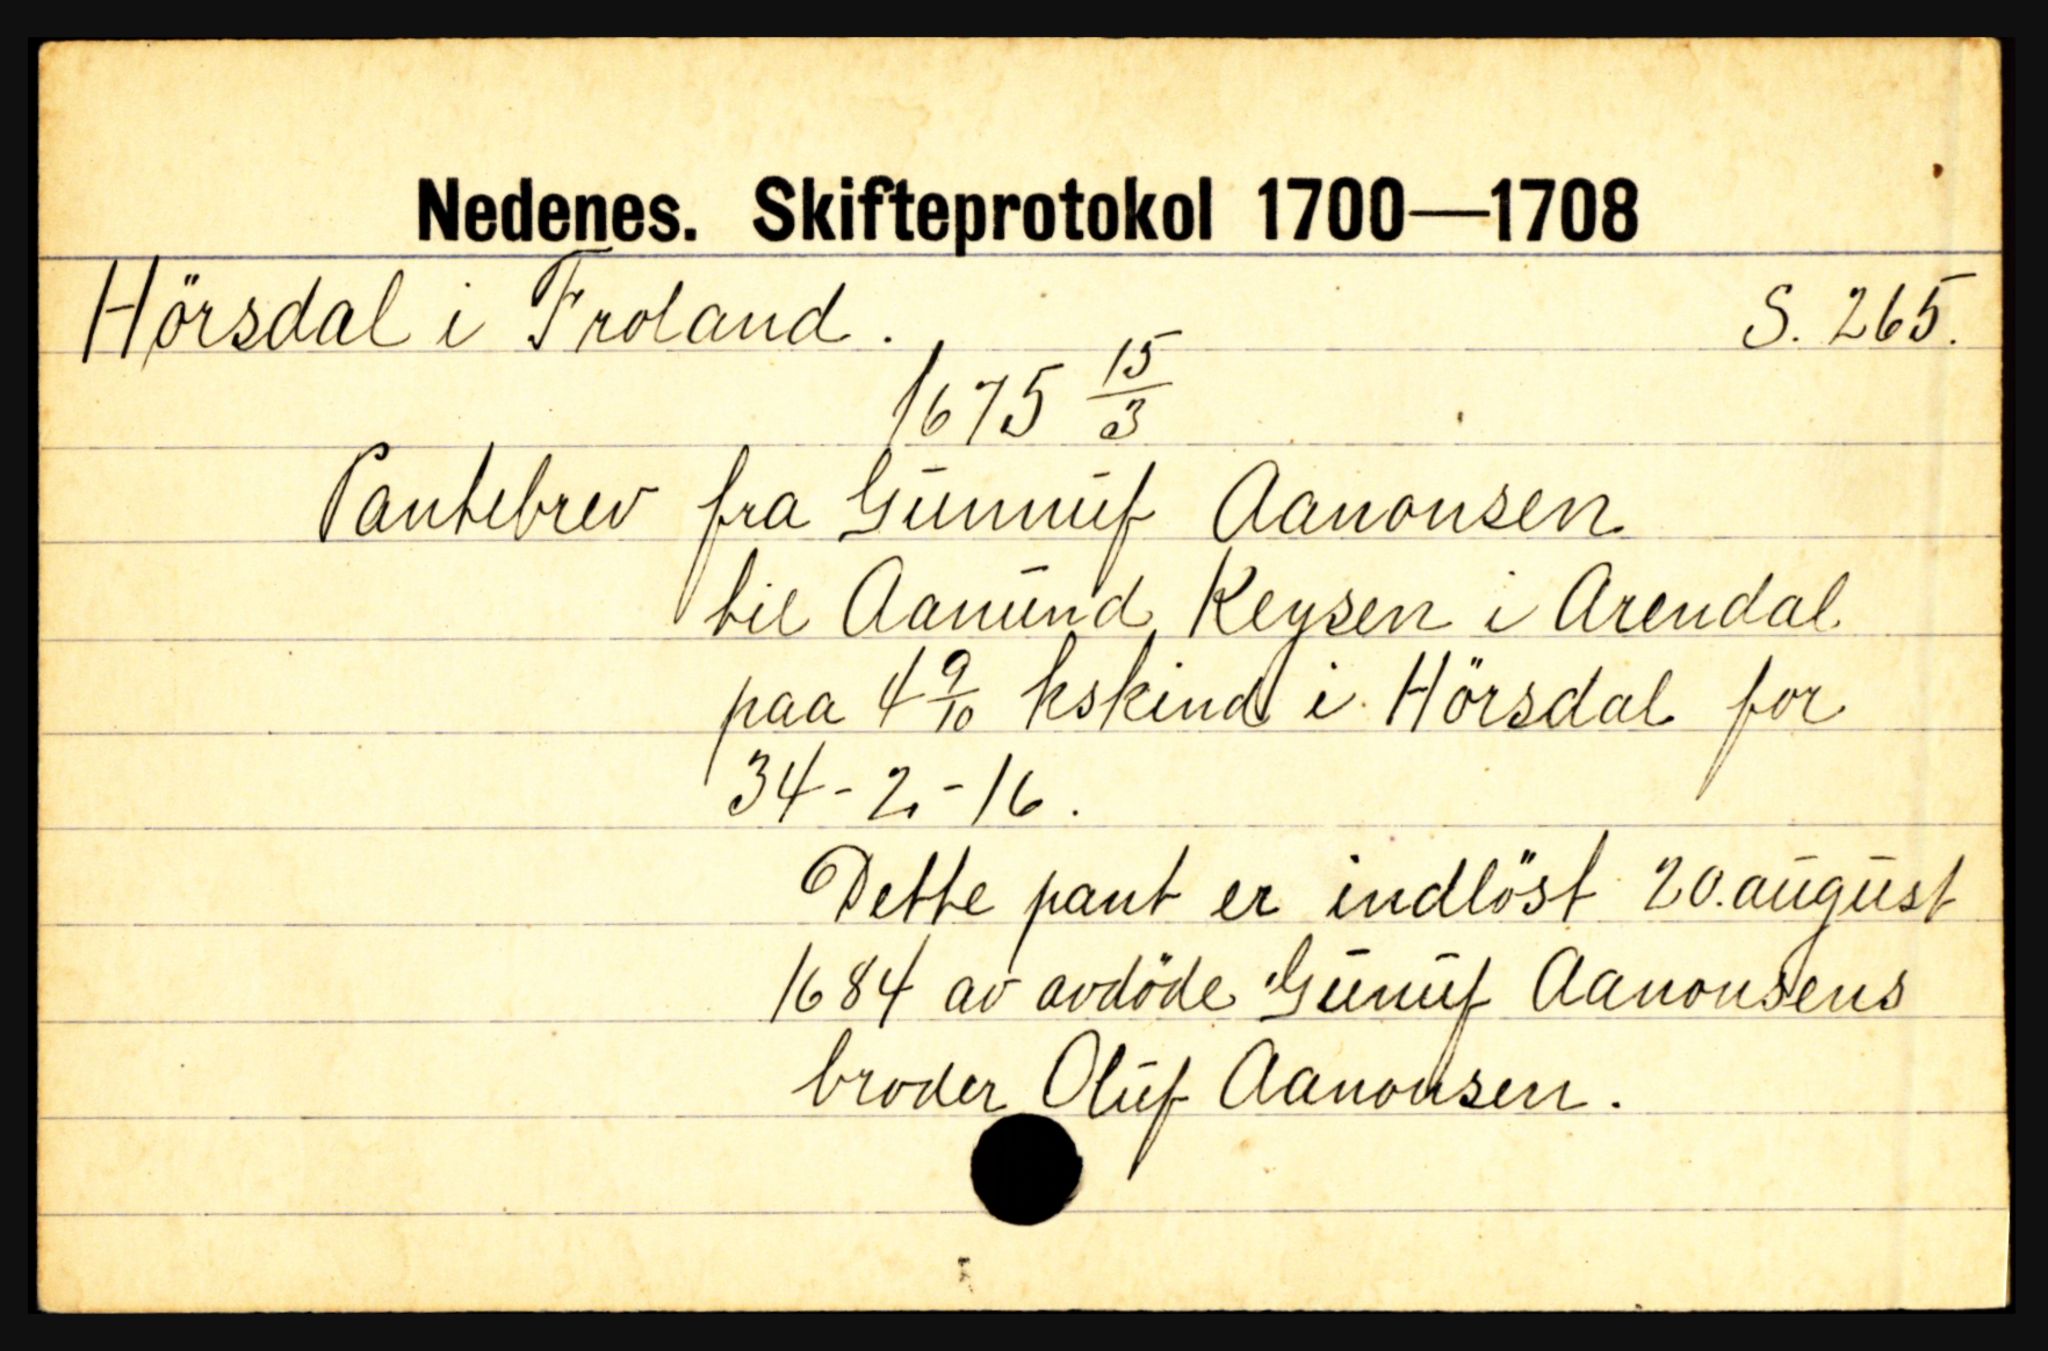 Nedenes. Skifteprotokol 1700—1708
Hörsdal i Froland. S. 265.
1675 15/3
Pantebrev fra Gunnuf Aanonsen
til Aanund Keysen i Arendal
paa 4 9/10 kskind i Hörsdal for
34-2-16.
Dette pant er indlöst 20. august
1684 av avdöde Gunuf Aanonsens
broder Oluf Aanonsen.